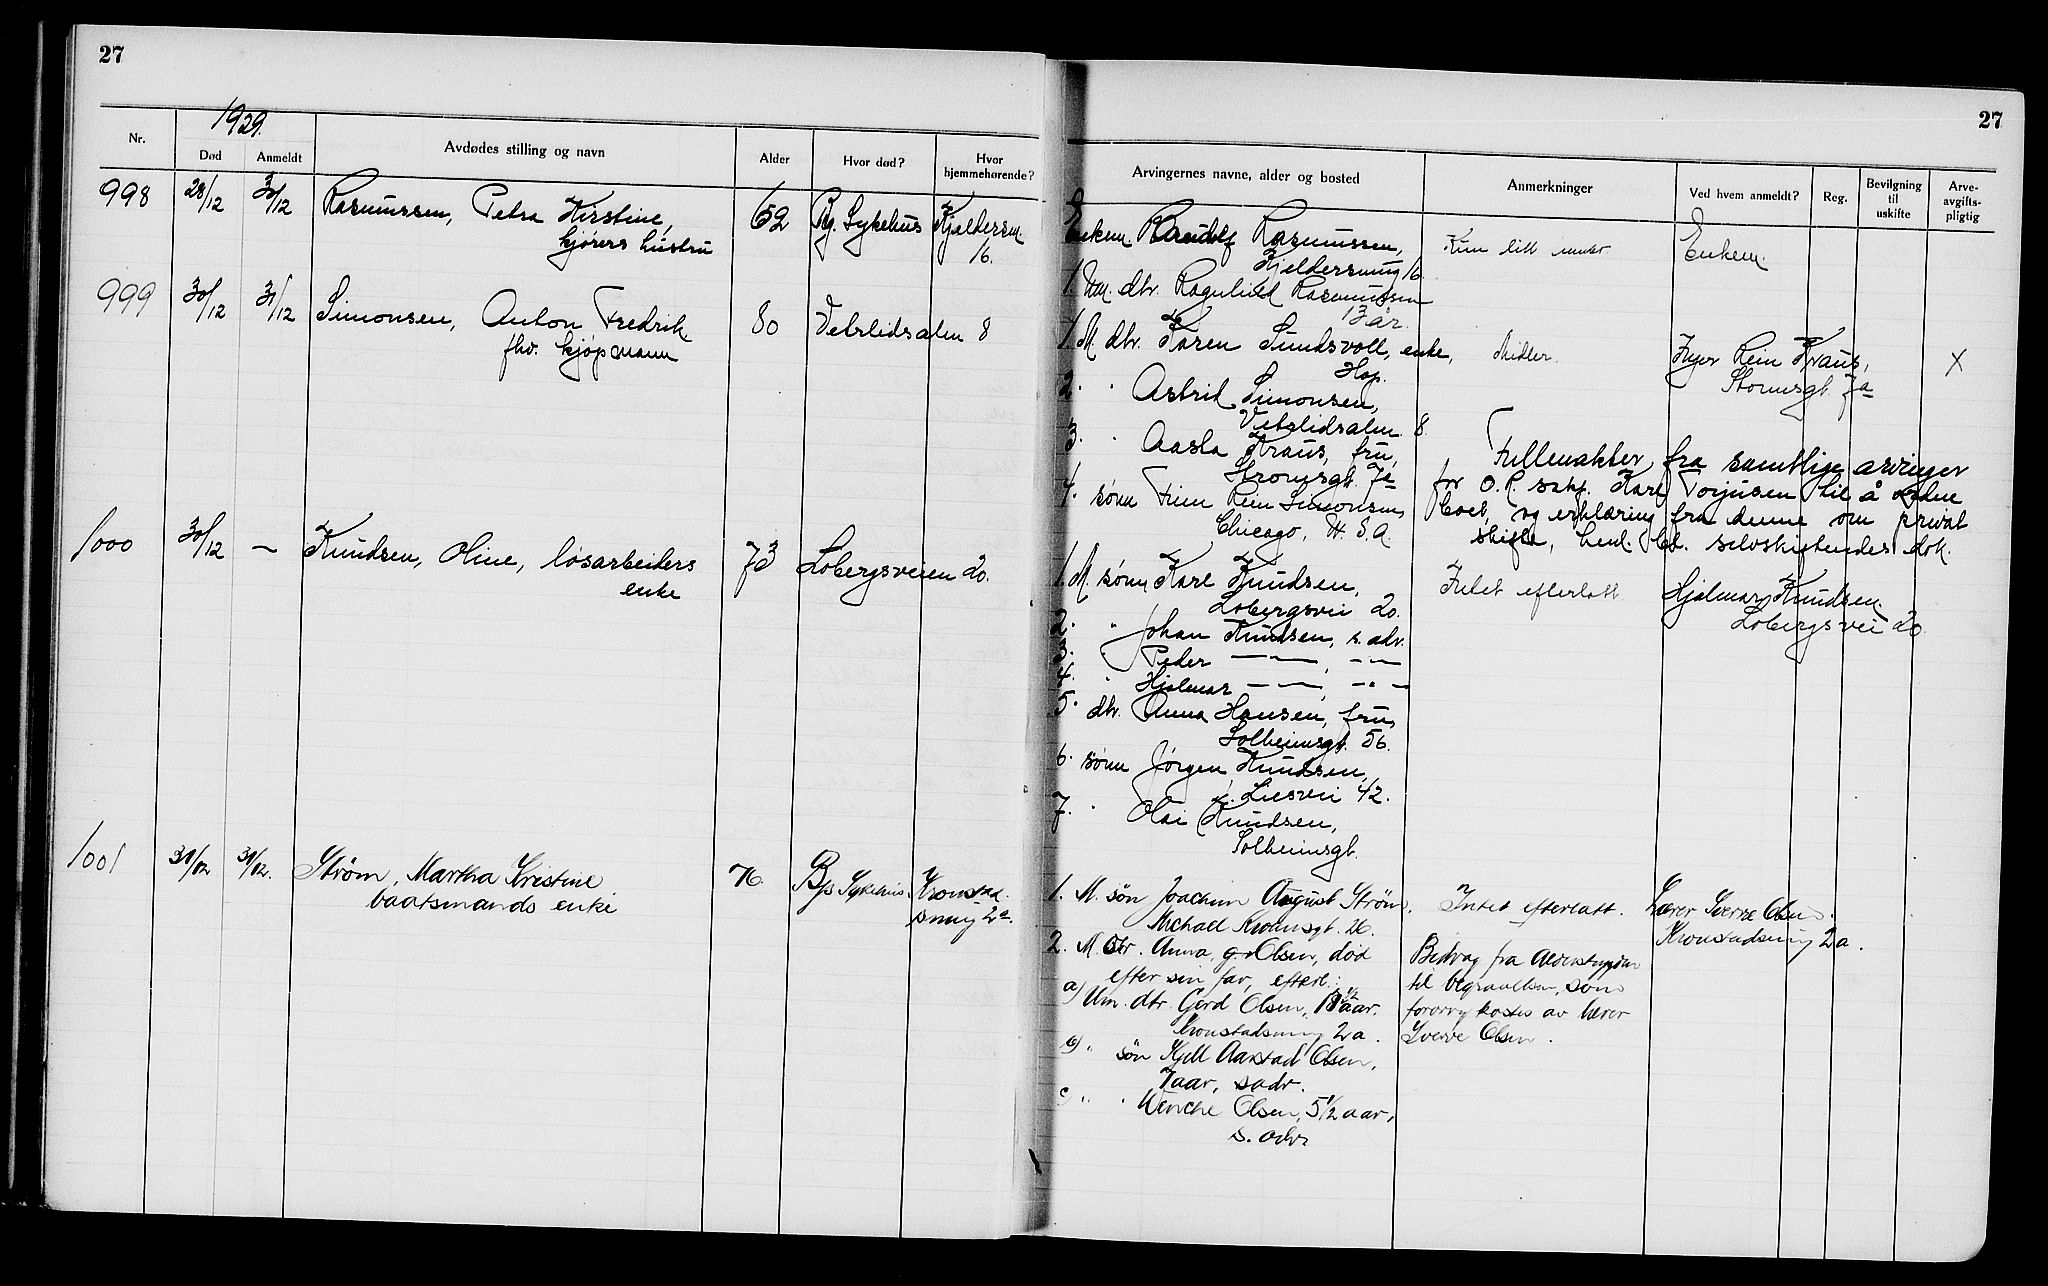 27
1929.
Nr.
Død
Anmeldt
Avdødes stilling og navn
Alder
Hvor død?
Hvor
hjemmehørende?
998 28/12 30/12 Rasmussen, Petra Kirstine, 62 Bg. Sykehus Kjeldersm.
kjørers hustru 16.
999 30/12 31/12 Simonsen, Anton Fredrik 80 Vetrlidsalm 8
fhv. kjøpmann
1000 30/12 — Knudsen, Oline, løsarbeiders 73 Løbergsveien 20.
enke
1001 31/12 31/12. Strøm, Martha Kristine 76. Bgs Sykehus. Kronstad-
baatsmands enke smug 2a.
27
Arvingernes navne, alder og bosted
Anmerkninger
Ved hvem anmeldt?
Reg.
Bevilgning
til
uskifte
Arve-
avgifts-
pligtig
Enkem. Rasmussen, Kun litt Enkem.
Kjeldersmug 16.
1. Um. dtr. Ragnhild Rasmussen
13 år.
1. M. dtr. Karen Sundsvoll, enke, Midler. Rein Kraus, X
Hop. Stromsgt. 7a
2. " Astrid Simonsen,
Vetrlidsalm. 8.
3. " Aasta Kraus, fru, Fullmakter fra samtlige arvinger
Stromsgt. 7a for O.R. sakf. Kare Torjusen til å ordne
4. sønn Rein Simonsen, boet, og erklæring fra denne om privat
Chicago, U.S.A. skifte, henl. bl. selvskiftendes dok.
1. M. sønn Kare Knudsen, Intet efterlatt. Hjalmar Knudsen.
Løbergsvei 20. Løbergsvei 20.
2. " Johan Knudsen, s. adr.
3. " Peder — " —, — " —
4. " Hjalmar — " —, — " —
5. dtr. Anna Hansen, fru,
Solheimsgt. 56.
6. sønn Jørgen Knudsen,
Liesvei 42.
7. " Olai Knudsen,
Solheimsgt.
1. M. søn Joachim August Strøm. Intet efterlatt. Lærer Sverre Olsen.
Michael Krohnsgt. 26. Kronstadsmug 2a.
2. M. dtr. Anna, g. Olsen, død Bidrag fra
efter sin far, efterl: til begravelsen, som
a) Um. dtr. Gerd Olsen, aar. forøvrig kostes av lærer
Kronstadsmug 2a. Sverre Olsen.
b) " søn Kjell Aarstad Olsen,
7 aar, s adr.
c) " " Wenche Olsen, 5 1/2 aar,
s. adr.